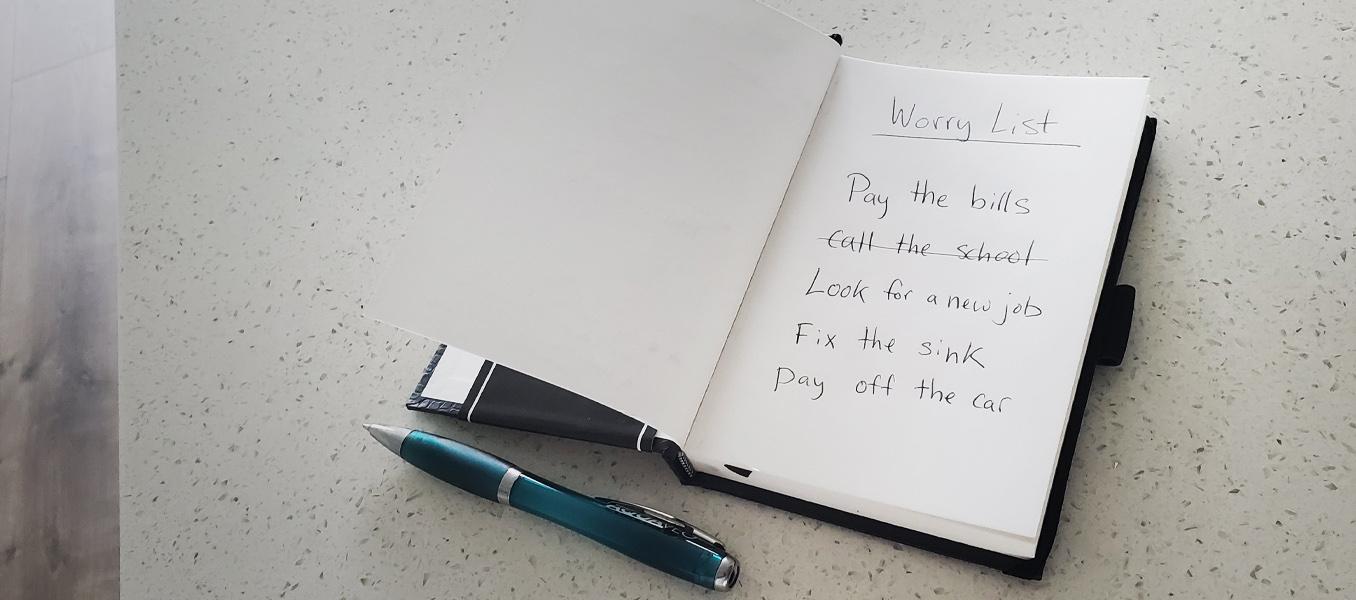 Worry List
Pay the bills
Call the school
Look for a new job
Fix the sink
Pay off the car